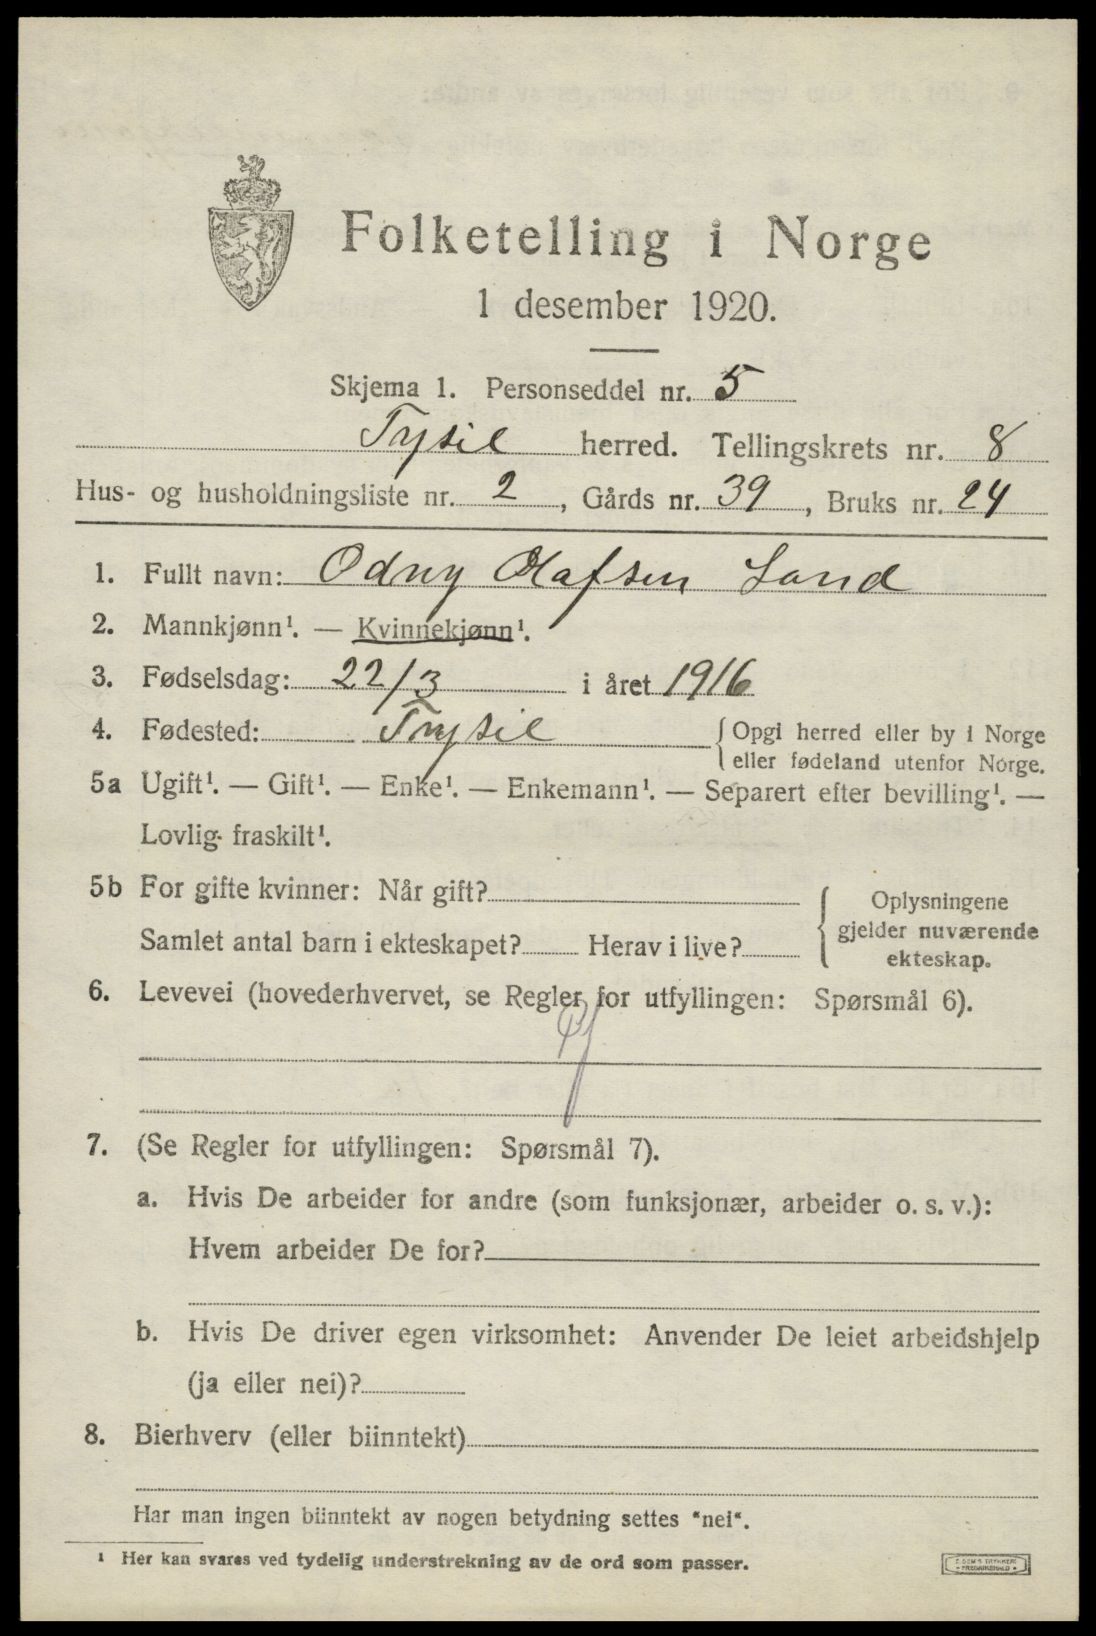 Folketelling i Norge
1 desember 1920.
Skjema 1. Personseddel nr. 5
Trysil herred. Tellingskrets nr. 8
Hus- og husholdningsliste nr. 2, Gårds nr. 39, Bruks nr. 24
1. Fullt navn: Odny Olafsen Sand
2. Mannkjønn¹. — Kvinnekjønn¹.
3. Fødselsdag: 22/3 i året 1916
4. Fødested: Trysil { Opgi herred eller by i Norge
eller fødeland utenfor Norge.
5a Ugift¹. — Gift¹. — Enke¹. — Enkemann¹. — Separert efter bevilling¹. —
Lovlig fraskilt¹.
5b For gifte kvinner: Når gift? { Oplysningene
gjelder nuværende
ekteskap.
Samlet antal barn i ekteskapet? Herav i live?
6. Levevei (hovederhvervet, se Regler for utfyllingen: Spørsmål 6).
7. (Se Regler for utfyllingen: Spørsmål 7).
a. Hvis De arbeider for andre (som funksjonær, arbeider o. s. v.):
Hvem arbeider De for?
b. Hvis De driver egen virksomhet: Anvender De leiet arbeidshjelp
(ja eller nei)?
8. Bierhverv (eller biinntekt)
Har man ingen biinntekt av nogen betydning settes "nei".
¹ Her kan svares ved tydelig understrekning av de ord som passer.